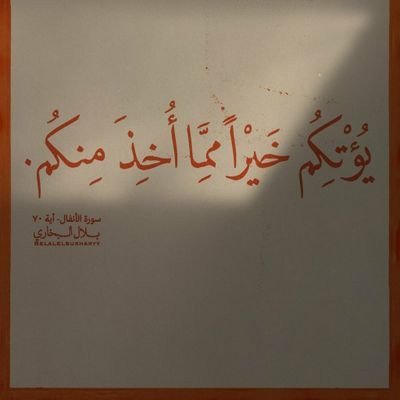 يُؤْتِكُم خَيْراً مِمَّا أُخِذَ مِنكُم.
سورة الأنفال - أية ٧٠
بلال البخاري
BELALELBUKHARYY